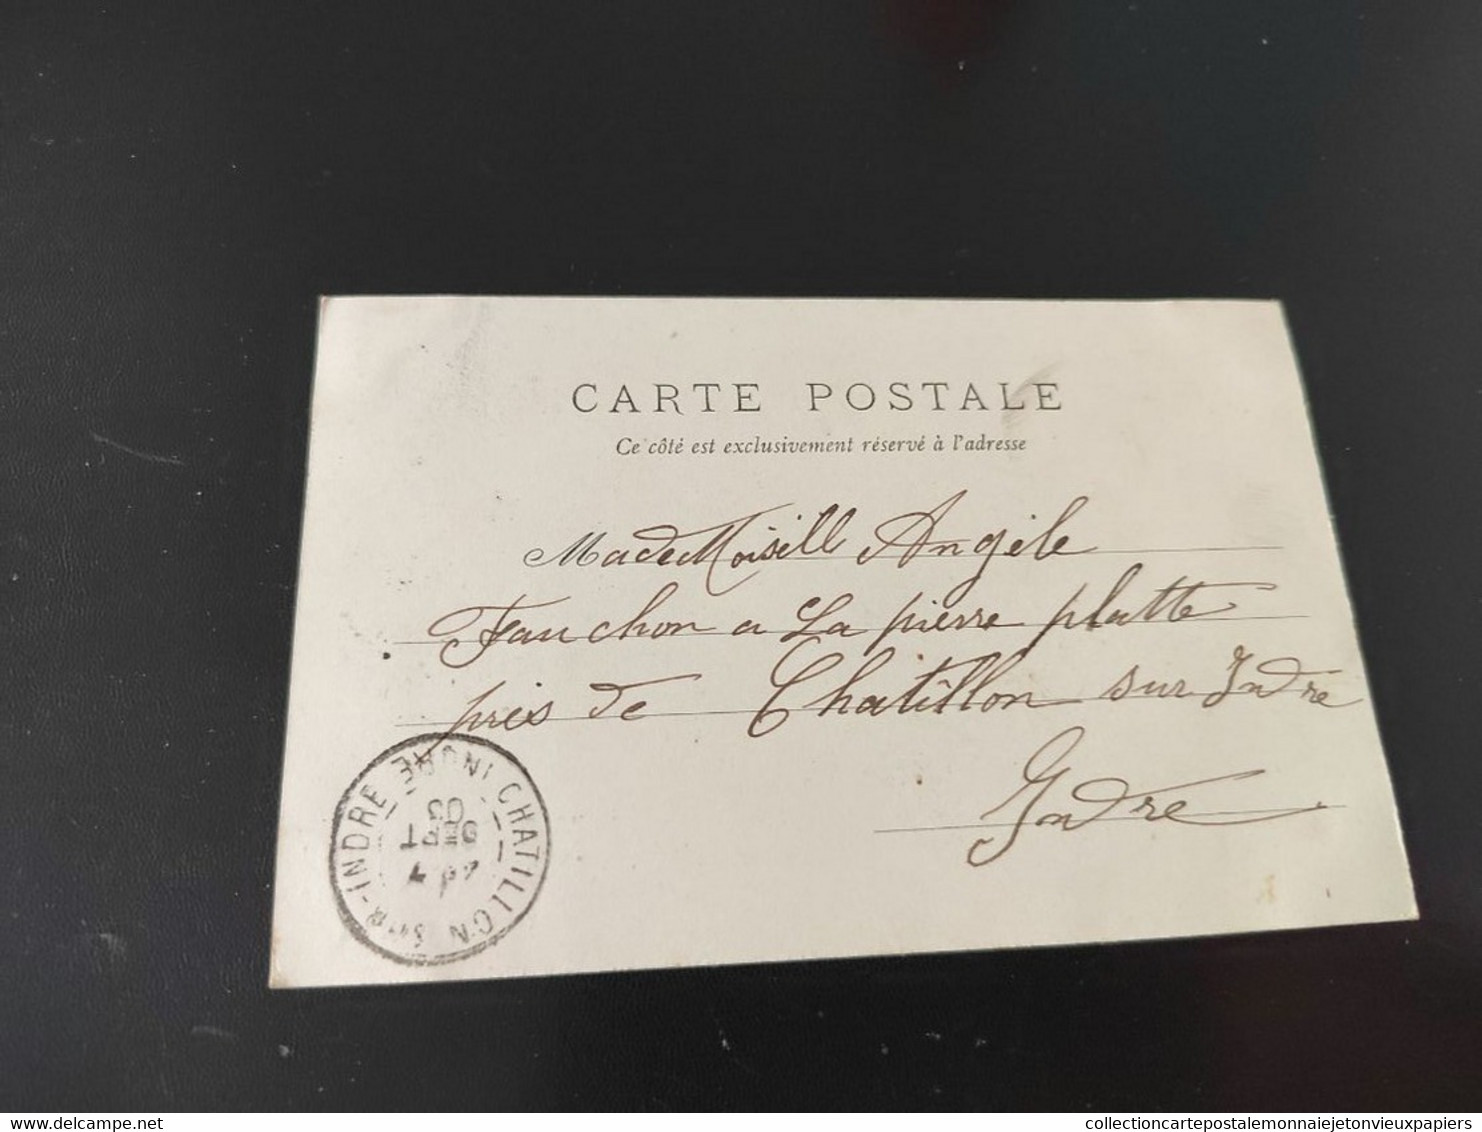 CARTE POSTALE
Ce côté est exclusivement réservé à l'adresse
Mademoisill Angèle
Fauchon a La pierre platte
près de Chatîllon sur Indre
Indre
CHATILLON SUR-INDRE INDRE
SEPT
03
collectioncartepostalemonnaiejetonvieuxpapiers